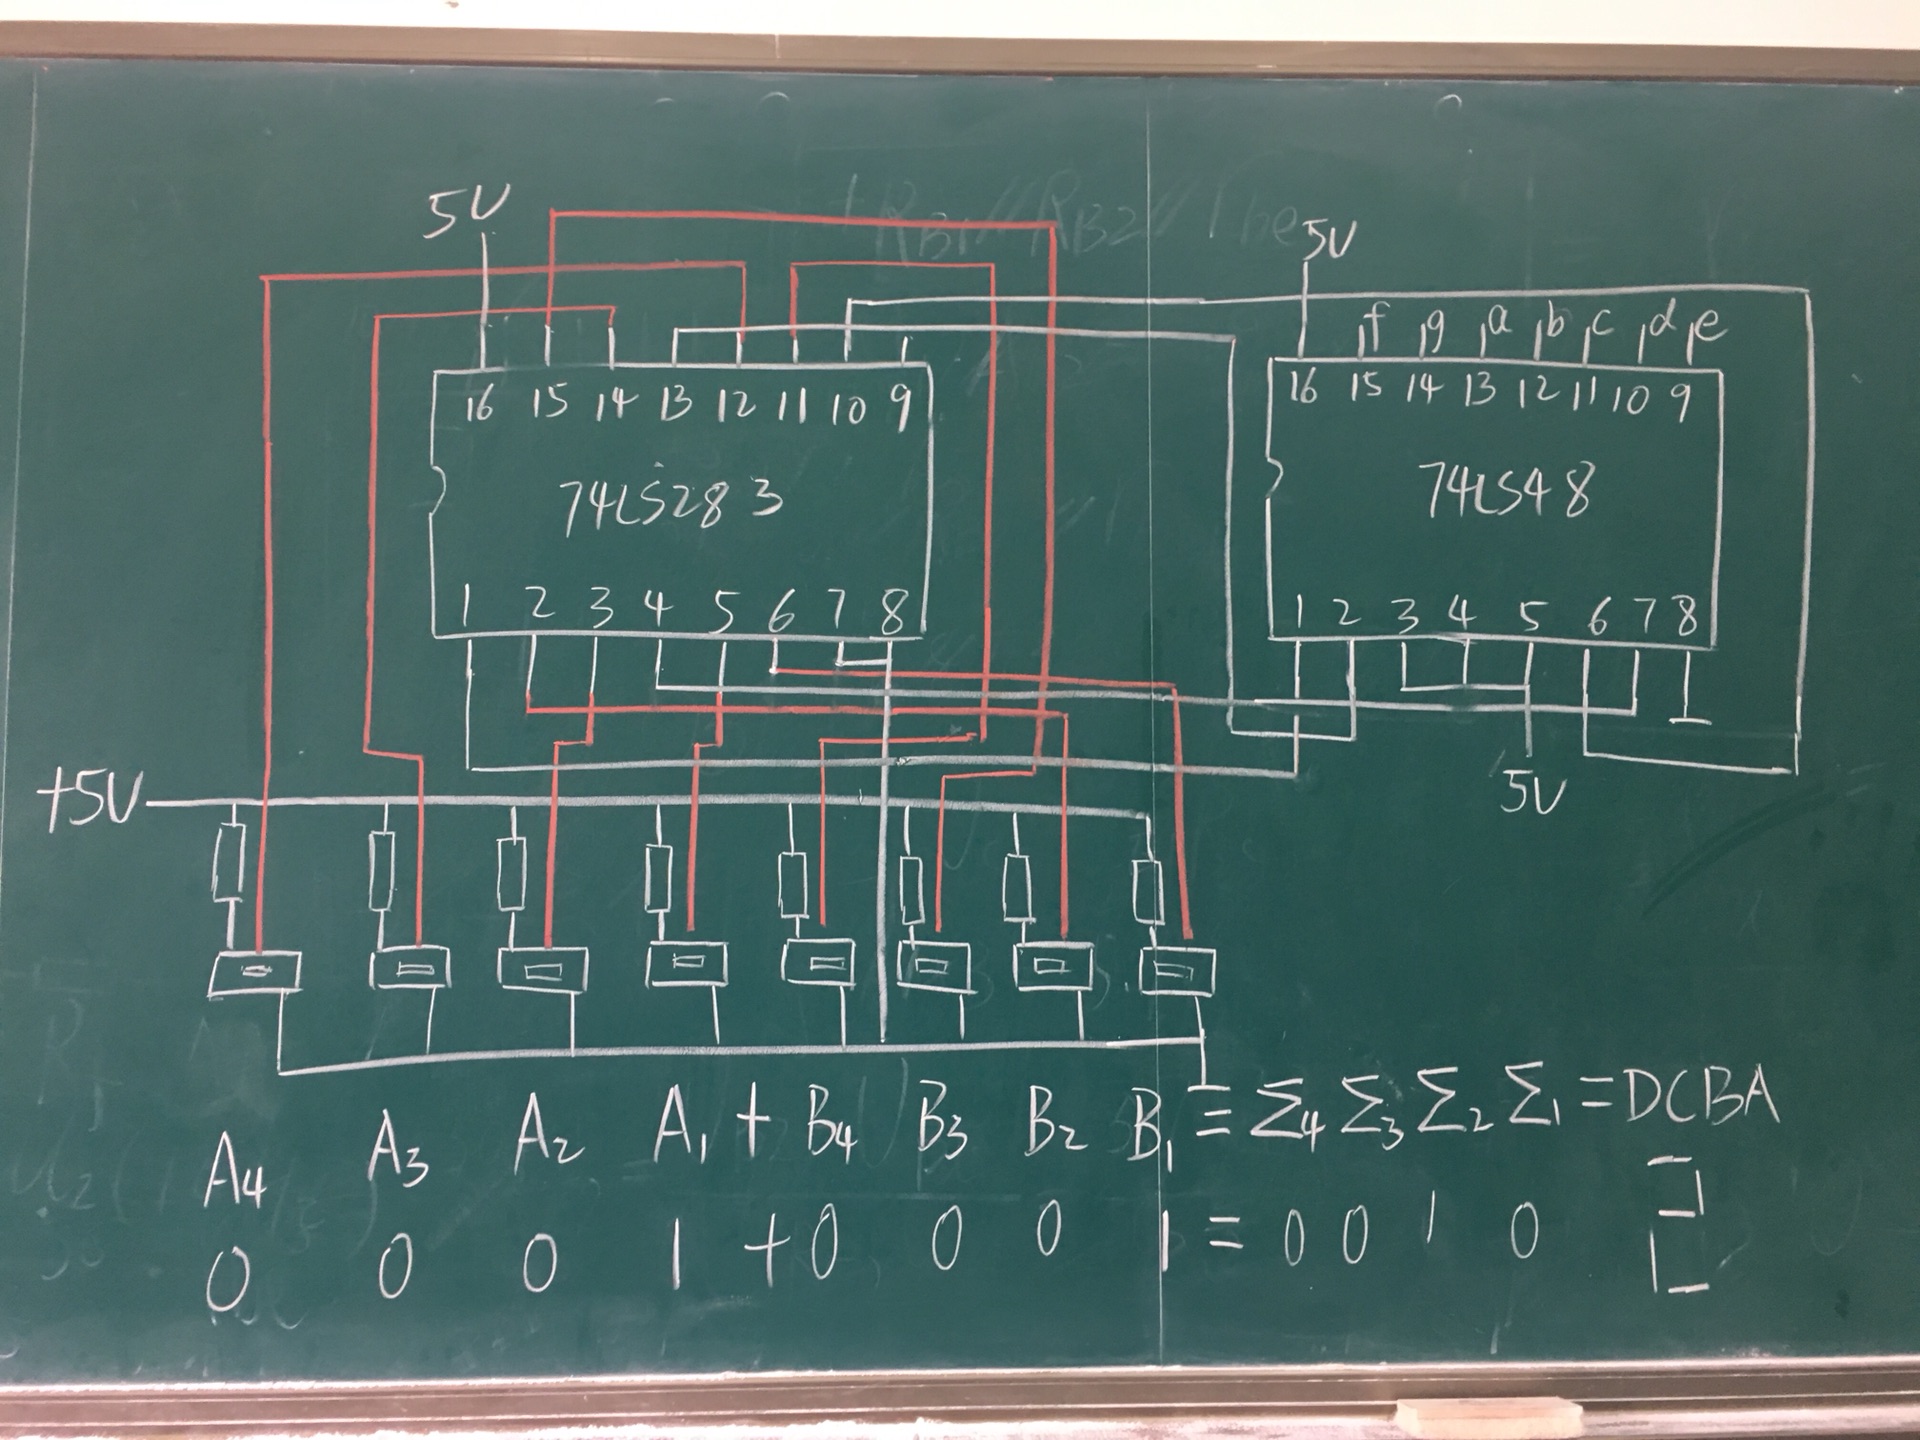 5V
5V
f g a b c d e
16 15 14 13 12 11 10 9
16 15 14 13 12 11 10 9
74LS283
74LS48
1 2 3 4 5 6 7 8
1 2 3 4 5 6 7 8
+5V
5V
A4 A3 A2 A1 + B4 B3 B2 B1 = Σ4 Σ3 Σ2 Σ1 = DCBA
0 0 0 1 + 0 0 0 1 = 0 0 1 0 2